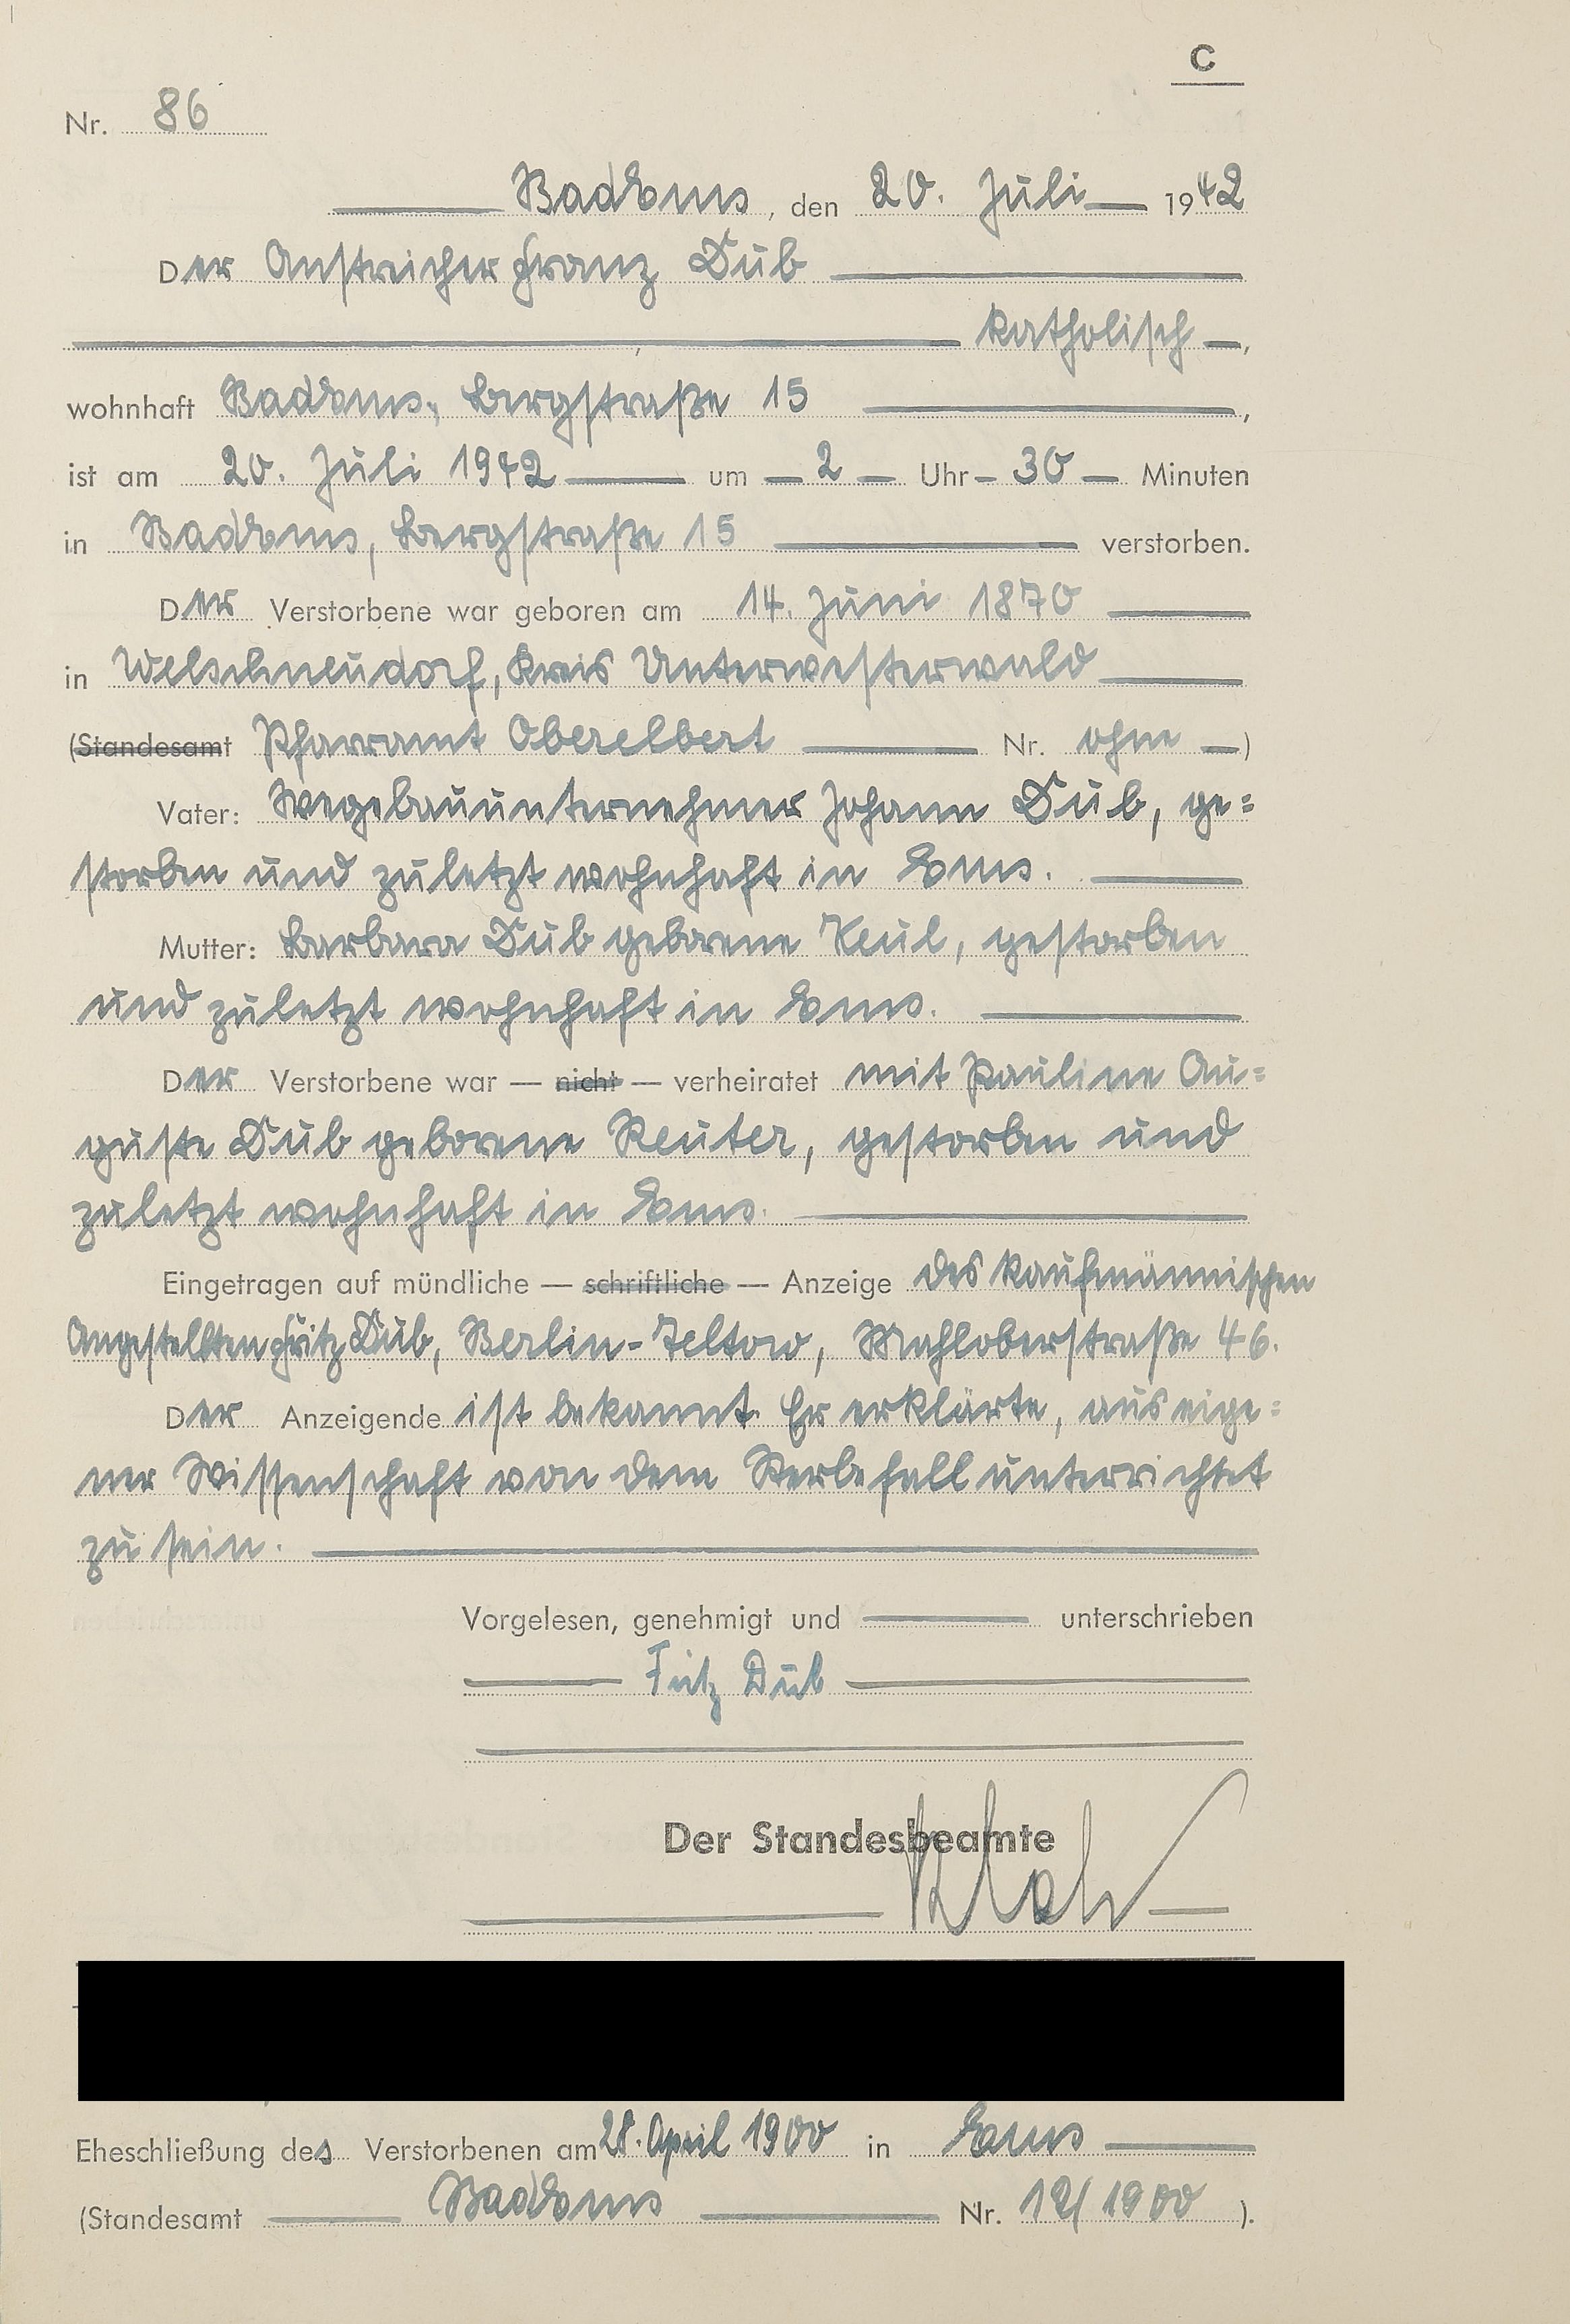 C
Nr. 86
Bad Ems, den 20. Juli 1942
Der Anstreicher Franz Düb
katholisch,
wohnhaft Bad Ems, Bergstraße 15,
ist am 20. Juli 1942 um 2 Uhr 30 Minuten
in Bad Ems, Bergstraße 15 verstorben.
Der Verstorbene war geboren am 14. Juni 1870
in Welschneudorf, Kreis Unterwesterwald
(Standesamt Pfarramt Oberelbert Nr. ohne )
Vater: Wegebauunternehmer Johann Düb, ge=
storben und zuletzt wohnhaft in Ems.
Mutter: Barbara Düb geborene Keul, gestorben
und zuletzt wohnhaft in Ems.
Der Verstorbene war — nicht — verheiratet mit Pauline Au=
guste Düb geborene Reuter, gestorben und
zuletzt wohnhaft in Ems.
Eingetragen auf mündliche — schriftliche — Anzeige des kaufmännischen
Angestellten Fritz Düb, Berlin-Teltow, 46.
Der Anzeigende ist bekannt. Er erklärte, aus eige=
ner Wissenschaft von dem Sterbefall unterrichtet
zu sein.
Vorgelesen, genehmigt und unterschrieben
Fritz Düb
Der Standesbeamte
Eheschließung des Verstorbenen am 28. April 1900 in Ems
(Standesamt Bad Ems Nr. 12/1900 ).